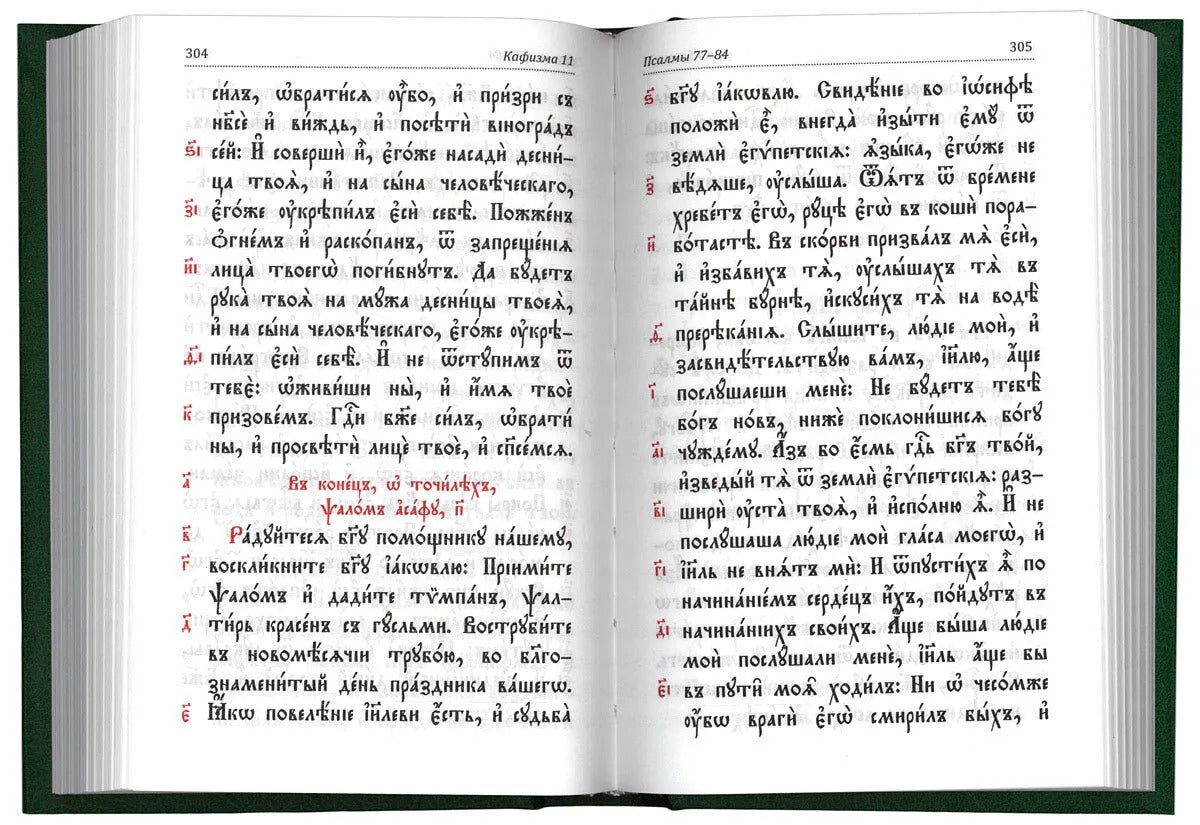 304
Кафизма 11
си́лъ, ѡ҆брати́сѧ ᲂу҆̀бо, и҆ при́зри съ
нб҃сѐ и҆ ви́ждь, и҆ посѣтѝ вїногра́дъ
ѕ҃і се́й: И҆ совершѝ и҆̀, є҆го́же насадѝ десни́-
ца твоѧ̀, и҆ на сы́на человѣ́ческаго,
з҃і є҆го́же ᲂу҆крѣпи́лъ є҆сѝ себѣ̀. Пожже́нъ
ѻ҆гне́мъ и҆ раско́панъ, ѿ запреще́нїѧ
и҃і лица̀ твоегѡ̀ поги́бнутъ. Да бꙋ́детъ
рꙋка̀ твоѧ̀ на мꙋ́жа десни́цы твоеѧ̀,
и҆ на сы́на человѣ́ческаго, є҆го́же ᲂу҆крѣ-
ѳ҃і пи́лъ є҆сѝ себѣ̀. И҆ не ѿстꙋ́пимъ ѿ
тебє̀: ѡ҆живи́ши ны̀, и҆ и҆́мѧ твоѐ
к҃ призове́мъ. Гдⷭ҇и бж҃е си́лъ, ѡ҆братѝ
ны̀, и҆ просвѣтѝ лицѐ твоѐ, и҆ спⷭ҇е́мсѧ.
а҃ Въ коне́цъ, ѡ҆ точи́лѣхъ,
ѱало́мъ а҆са́фꙋ, п҃
в҃ Ра́дꙋйтесѧ бг҃ꙋ помо́щникꙋ на́шемꙋ,
г҃ воскли́кните бг҃ꙋ і҆а́кѡвлю: Прїими́те
ѱало́мъ и҆ дади́те тѷмпа́нъ, ѱал-
д҃ ти́рь красе́нъ съ гꙋ́сльми. Вострꙋби́те
въ новомⷭ҇ѣ́чїи трꙋбо́ю, во бл҃го-
знамени́тый де́нь пра́здника ва́шегѡ.
є҃ Ꙗ҆́кѡ повелѣ́нїе і҆и҃леви є҆́сть, и҆ сꙋдьба̀
Псалмы 77–84
305
ѕ҃ бг҃ꙋ і҆а́кѡвлю. Свидѣ́нїе во і҆ѡ́сифѣ
положѝ є҆̀, внегда̀ и҆зы́ти є҆мꙋ̀ ѿ
землѝ є҆гѵ́петскїѧ: ѧ҆зы́ка, є҆гѡ́же не
з҃ вѣ́дѧше, ᲂу҆слы́ша. Ѿѧ́тъ ѿ бре́мене
хребе́тъ є҆гѡ̀, рꙋ́цѣ є҆гѡ̀ въ ко́ши пора-
и҃ бо́тастѣ. Въ ско́рби призва́лъ мѧ̀ є҆сѝ,
и҆ и҆зба́вихъ тѧ̀, ᲂу҆слы́шахъ тѧ̀ въ
та́йнѣ бꙋ́рнѣ, и҆скꙋси́хъ тѧ̀ на водѣ̀
ѳ҃ пререка́нїѧ. Слы́шите, лю́дїе моѝ, и҆
засвидѣ́тельствꙋю ва́мъ, і҆и҃лю, а҆́ще
і҃ послꙋ́шаеши менє̀: Не бꙋ́детъ тебѣ̀
бо́гъ но́въ, нижѐ поклони́шисѧ бо́гꙋ
а҃і чꙋжде́мꙋ. А҆́зъ бо є҆́смь гдⷭ҇ь бг҃ъ тво́й,
и҆зведы́й тѧ̀ ѿ землѝ є҆гѵ́петскїѧ: раз-
в҃і ширѝ ᲂу҆ста̀ твоѧ̀, и҆ и҆спо́лню ѧ҆̀. И҆ не
послꙋ́шаша лю́дїе моѝ гла́са моегѡ̀, и҆
г҃і і҆и҃ль не внѧ́тъ мѝ: И҆ ѿпꙋсти́хъ ѧ҆̀ по
начина́нїємъ серде́цъ и҆́хъ, по́йдꙋтъ въ
д҃і начина́нїихъ свои́хъ. А҆́ще бы́ша лю́дїе
моѝ послꙋ́шали менє̀, і҆и҃ль а҆́ще бы
є҃і въ пꙋти҄ моѧ҄ ходи́лъ: Ни ѡ҆ чесо́мже
ᲂу҆́бѡ врагѝ є҆гѡ̀ смири́лъ бы́хъ, и҆